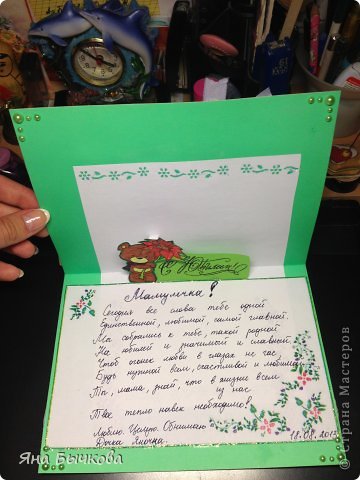 С Юбилеем!
Мамулечка!
Сегодня все слова тебе одной
Единственной, любимой, самой главной.
Мы собрались к тебе, такой родной
На юбилей и значимый и славный,
Чтоб огонек любви в глазах не гас,
Будь нужной всем, счастливой и любимой
Ты, мама, знай, что в жизни всем из нас
Твое тепло навек необходимо!
Люблю. Целую. Обнимаю
Дочка Яночка.
18.08.2013
Яна Бычкова
© Страна Мастеров